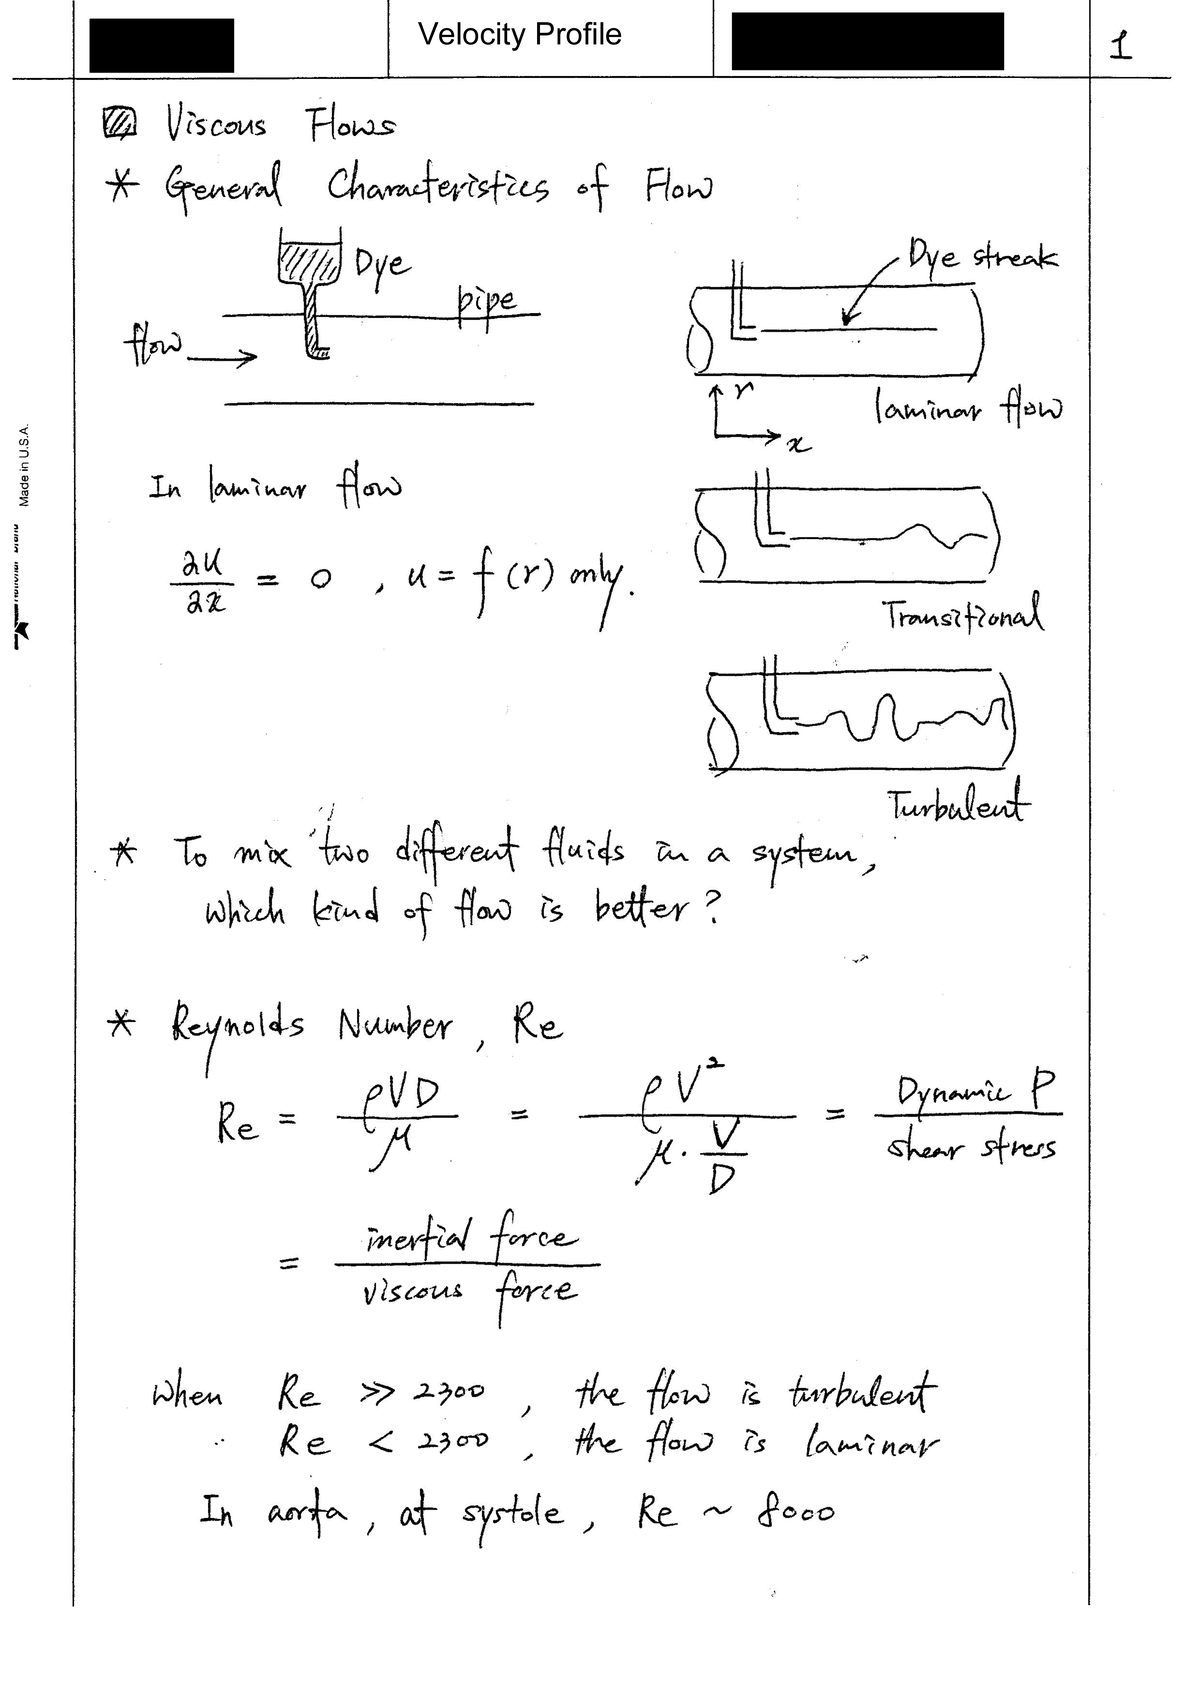 Velocity Profile
1
Viscous Flows
* General Characteristics of Flow
Dye
pipe
flow
Dye streak
r
x
laminar flow
In laminar flow
∂u/∂x = 0 , u = f(r) only.
Transitional
Turbulent
* To mix two different fluids in a system,
which kind of flow is better?
* Reynolds Number, Re
Re = ρVD/μ = ρV²/(μ · V/D) = Dynamic P/shear stress
= inertial force/viscous force
When Re >> 2300, the flow is turbulent
Re < 2300, the flow is laminar
In aorta, at systole, Re ~ 8000
Made in U.S.A.